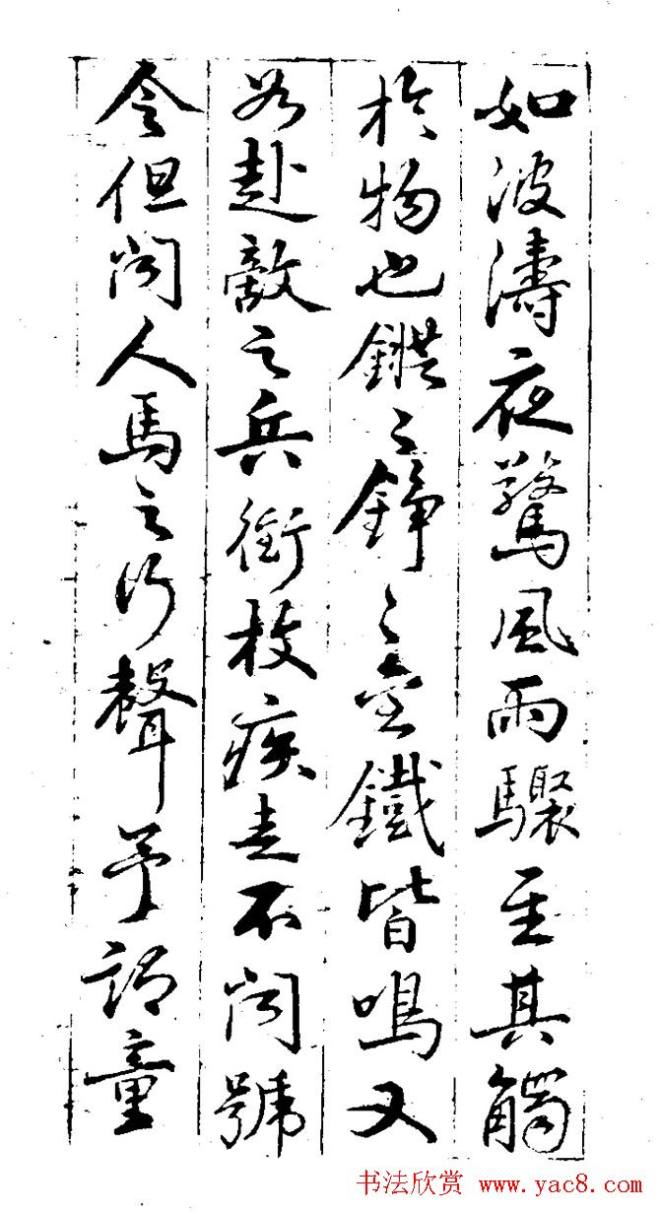 如波濤夜驚風雨驟至其觸
於物也鏦〻錚〻金鐵皆鳴又
如赴敵之兵銜枚疾走不聞號
令但聞人馬之行聲予謂童
书法欣赏 www.yac8.com